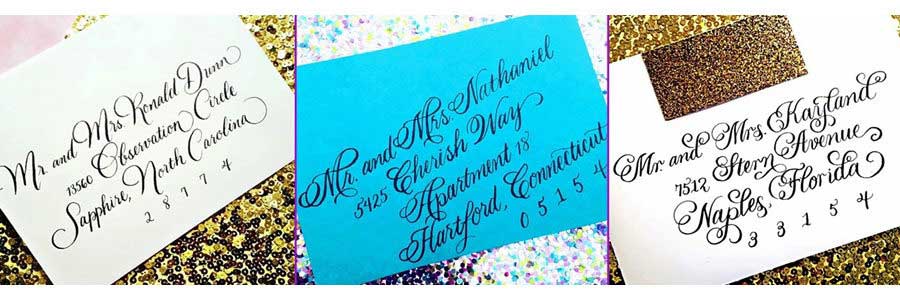 Mr. and Mrs. Ronald Dunn
13560 Observation Circle
Sapphire, North Carolina
28774
Mr. and Mrs. Nathaniel
5425 Cherish Way
Apartment 18
Hartford, Connecticut
05154
Mr. and Mrs. Kayland
7512 Stern Avenue
Naples, Florida
33154